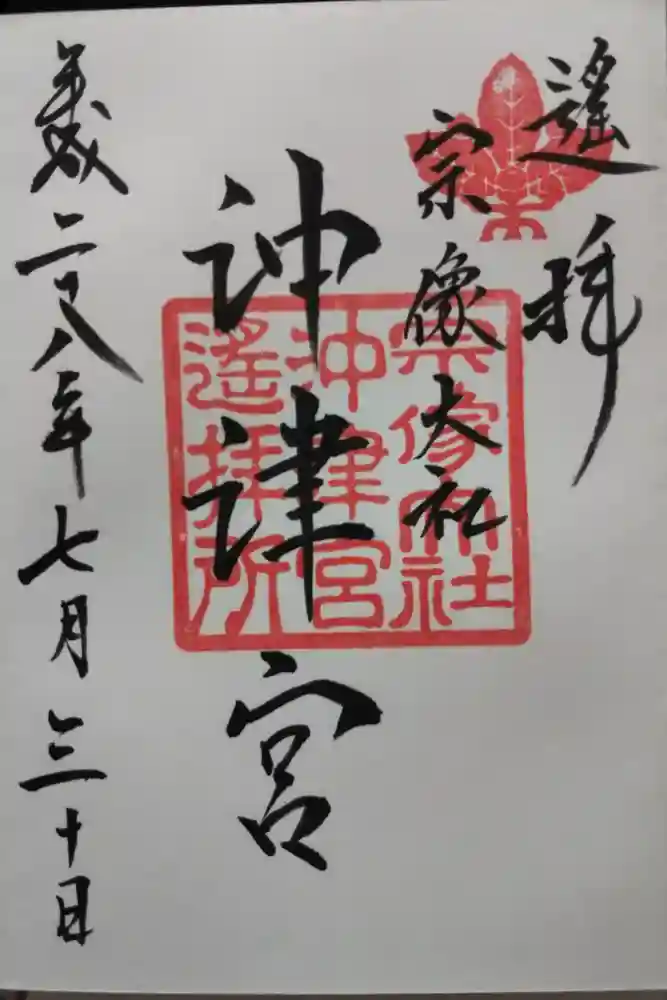 遥拝
宗像大社
沖津宮
平成二十八年七月三十日
宗像大社
沖津宮
遥拝所